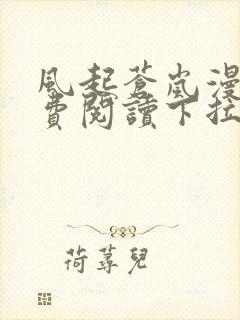 風起蒼嵐漫
費閱讀下拉
荷蕁兒